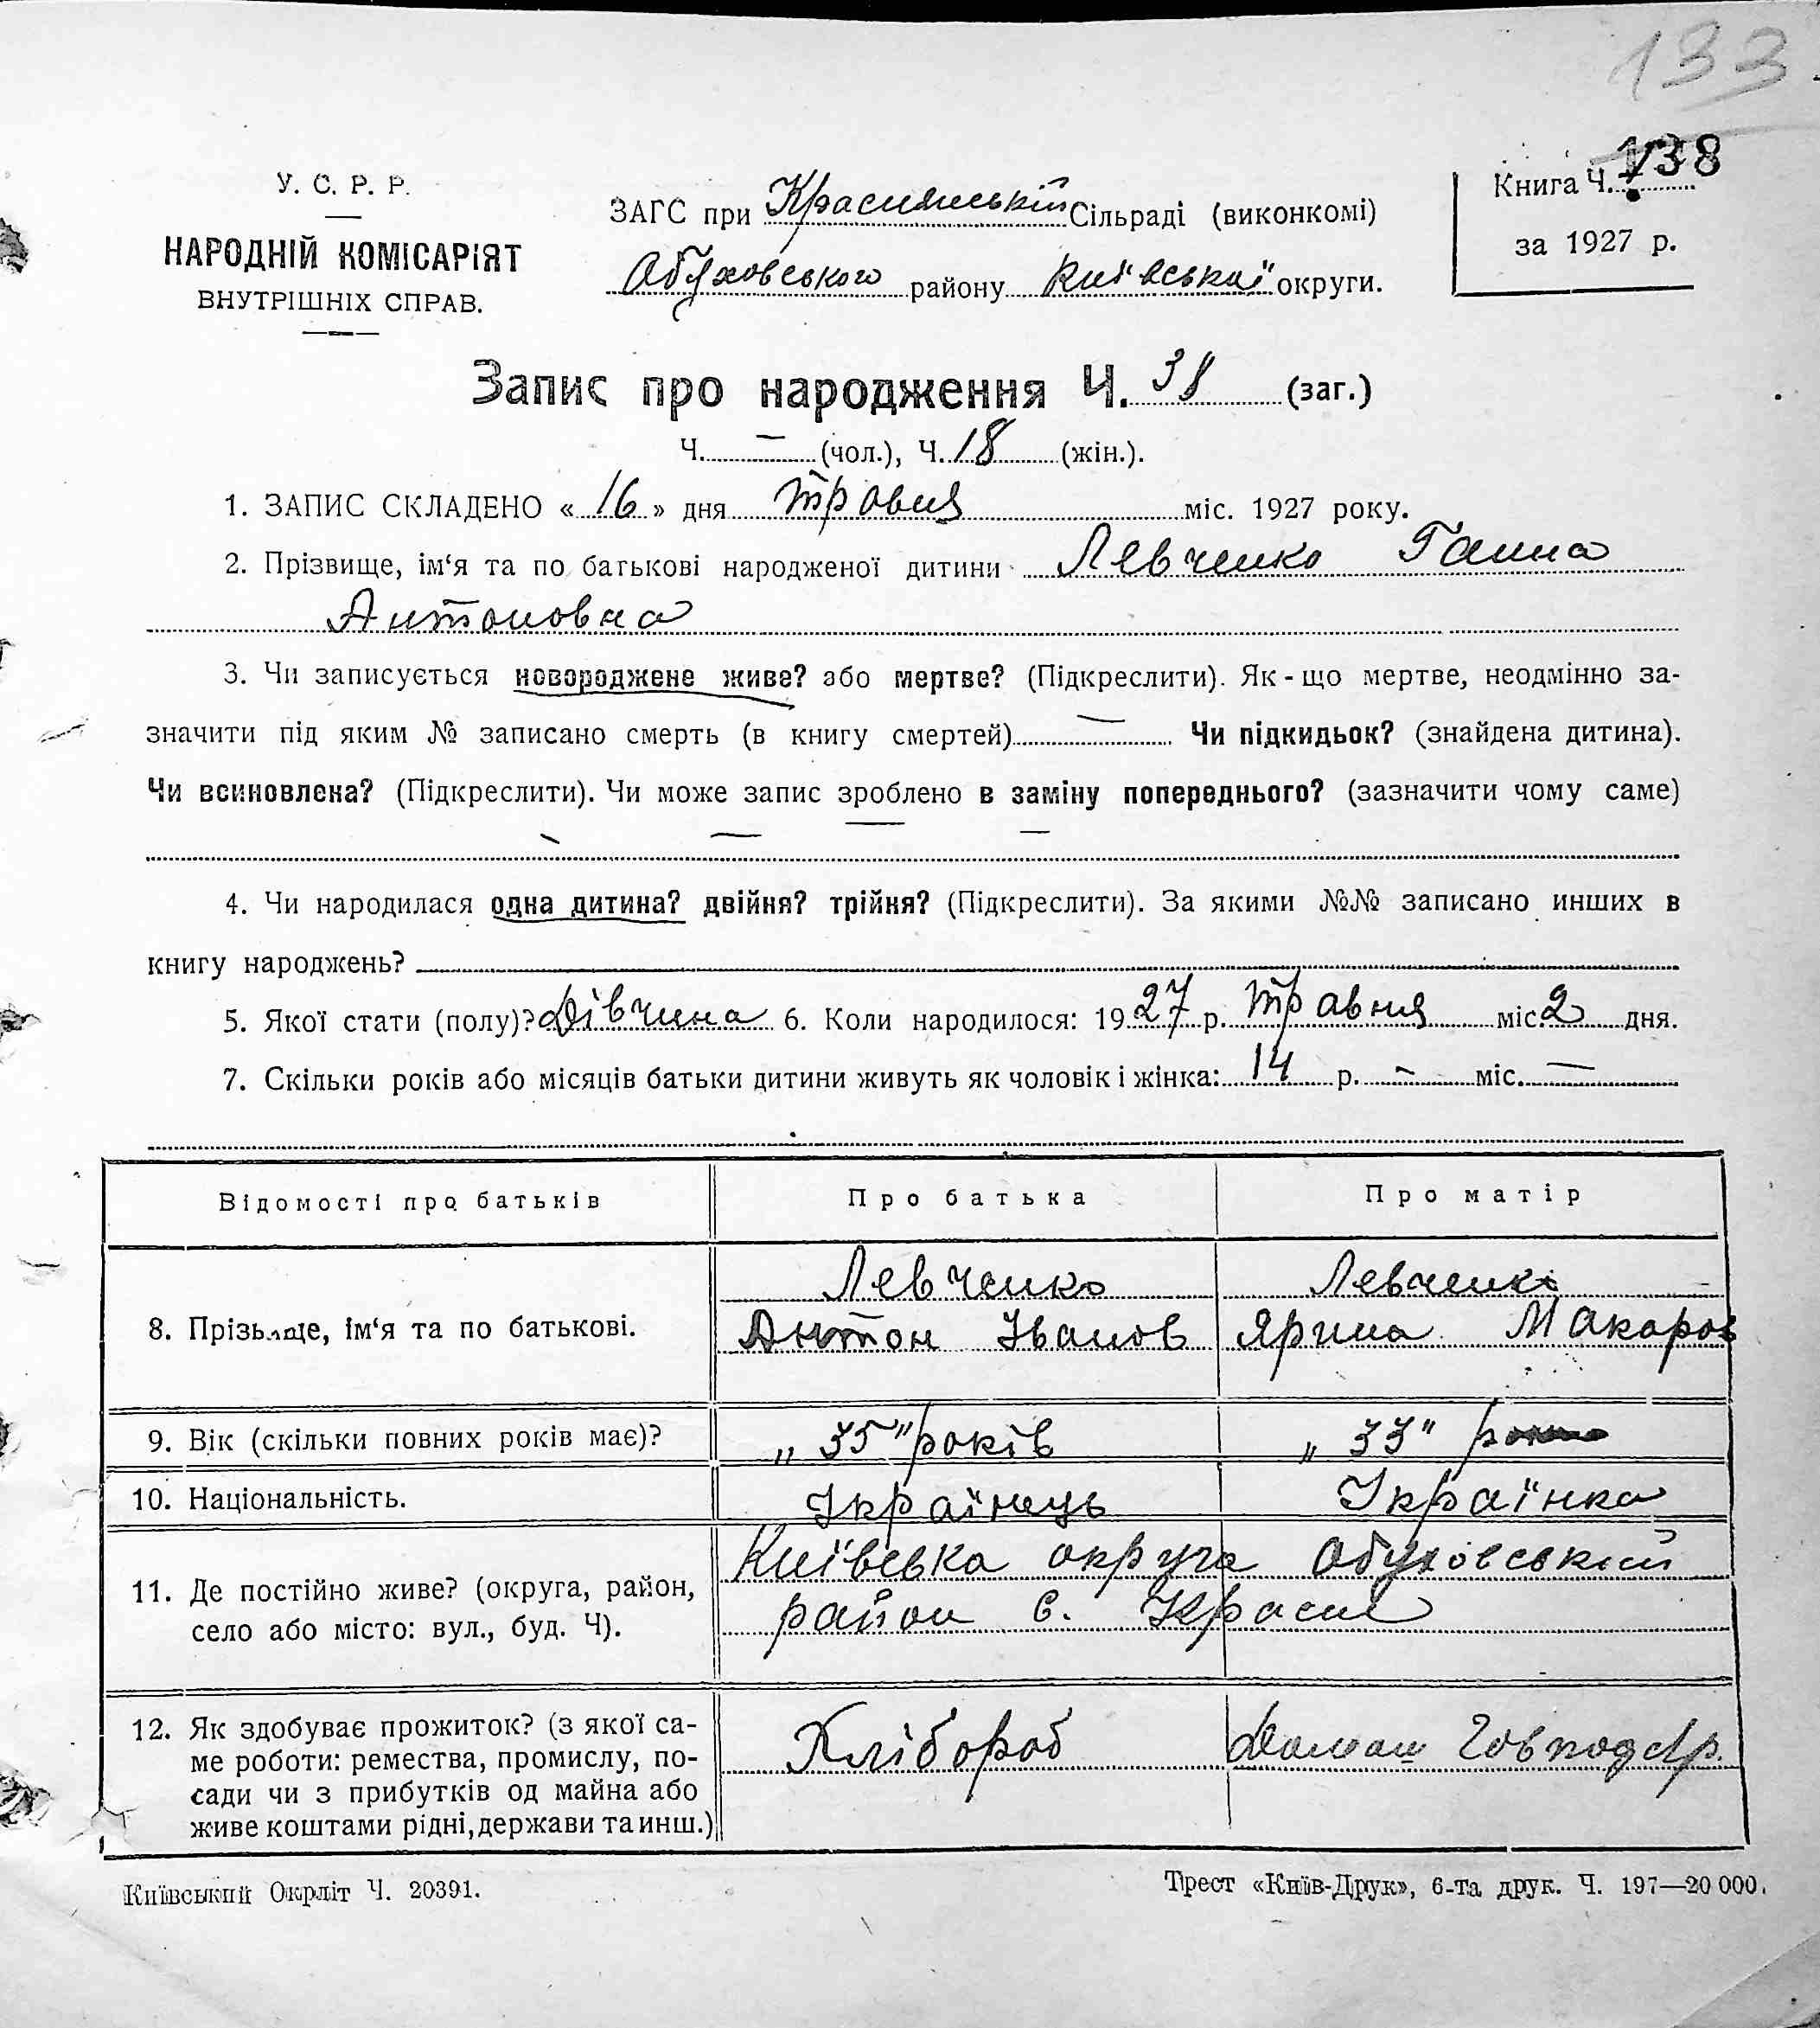 133
У. С. Р. Р.
НАРОДНІЙ КОМІСАРІЯТ
ВНУТРІШНІХ СПРАВ.
ЗАГС при Краснянській Сільраді (виконкомі)
Обуховського району Київської округи.
Книга Ч. 138
за 1927 р.
Запис про народження Ч. 38 (заг.)
Ч. — (чол.), Ч. 18 (жін.).
1. ЗАПИС СКЛАДЕНО «16» дня травня міс. 1927 року.
2. Прізвище, ім‘я та по батькові народженої дитини Левченко Ганна
Антоновна
3. Чи записується новороджене живе? або мертве? (Підкреслити). Як-що мертве, неодмінно за-
значити під яким № записано смерть (в книгу смертей) — Чи підкидьок? (знайдена дитина).
Чи всиновлена? (Підкреслити). Чи може запис зроблено в заміну попереднього? (зазначити чому саме)
— — —
4. Чи народилася одна дитина? двійня? трійня? (Підкреслити). За якими №№ записано инших в
книгу народжень?
5. Якої стати (полу)? Дівчина 6. Коли народилося: 1927 р. травня міс. 2 дня.
7. Скільки років або місяців батьки дитини живуть як чоловік і жінка: 14 р. — міс. —
Відомості про батьків Про батька Про матір
8. Прізвище, ім‘я та по батькові.
Левченко
Антон Іванов
Левченко
Ярина Макаров
9. Вік (скільки повних років має)? „35" років „33" р
10. Національність. Українець Українка
11. Де постійно живе? (округа, район,
село або місто: вул., буд. Ч).
Київська округа Обуховський
район с. Красне
12. Як здобуває прожиток? (з якої са-
ме роботи: ремества, промислу, по-
сади чи з прибутків од майна або
живе коштами рідні, держави та инш.)
Хлібороб
Домаш Господар.
Київський Окрліт Ч. 20391.
Трест «Київ-Друк», 6-та друк. Ч. 197—20 000.